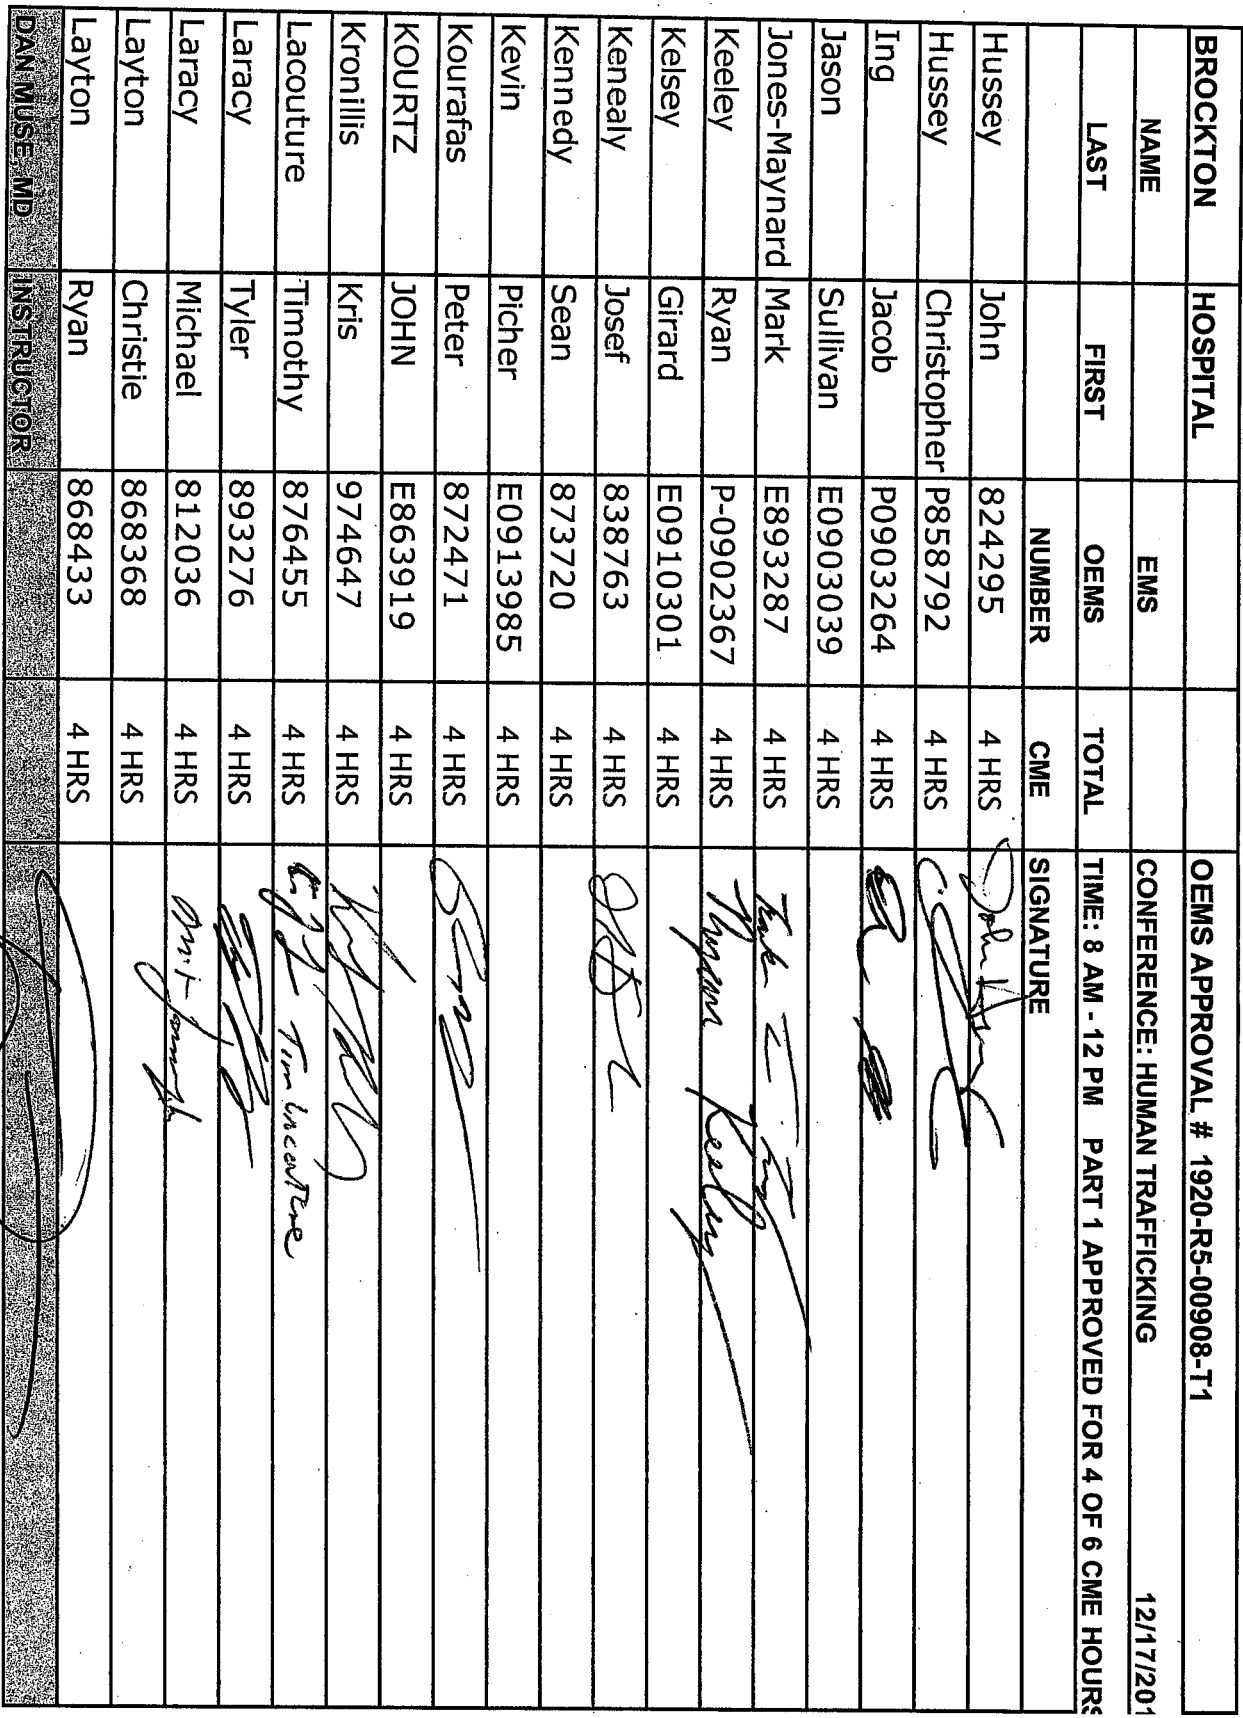 BROCKTON HOSPITAL OEMS APPROVAL # 1920-R5-00908-T1
NAME EMS CONFERENCE: HUMAN TRAFFICKING 12/17/201
LAST FIRST OEMS TOTAL TIME: 8 AM - 12 PM PART 1 APPROVED FOR 4 OF 6 CME HOURS
NUMBER CME SIGNATURE
Hussey John 824295 4 HRS John
Hussey Christopher P858792 4 HRS
Ing Jacob P0903264 4 HRS
Jason Sullivan E0903039 4 HRS
Jones-Maynard Mark E893287 4 HRS
Keeley Ryan P-0902367 4 HRS Ryan Keeley
Kelsey Girard E0910301 4 HRS
Kenealy Josef 838763 4 HRS
Kennedy Sean 873720 4 HRS
Kevin Picher E0913985 4 HRS
Kourafas Peter 872471 4 HRS
KOURTZ JOHN E863919 4 HRS
Kronillis Kris 974647 4 HRS
Lacouture Timothy 876455 4 HRS Tim Lacouture
Laracy Tyler 893276 4 HRS
Laracy Michael 812036 4 HRS
Layton Christie 868368 4 HRS
Layton Ryan 868433 4 HRS
DAN MUSE, MD INSTRUCTOR